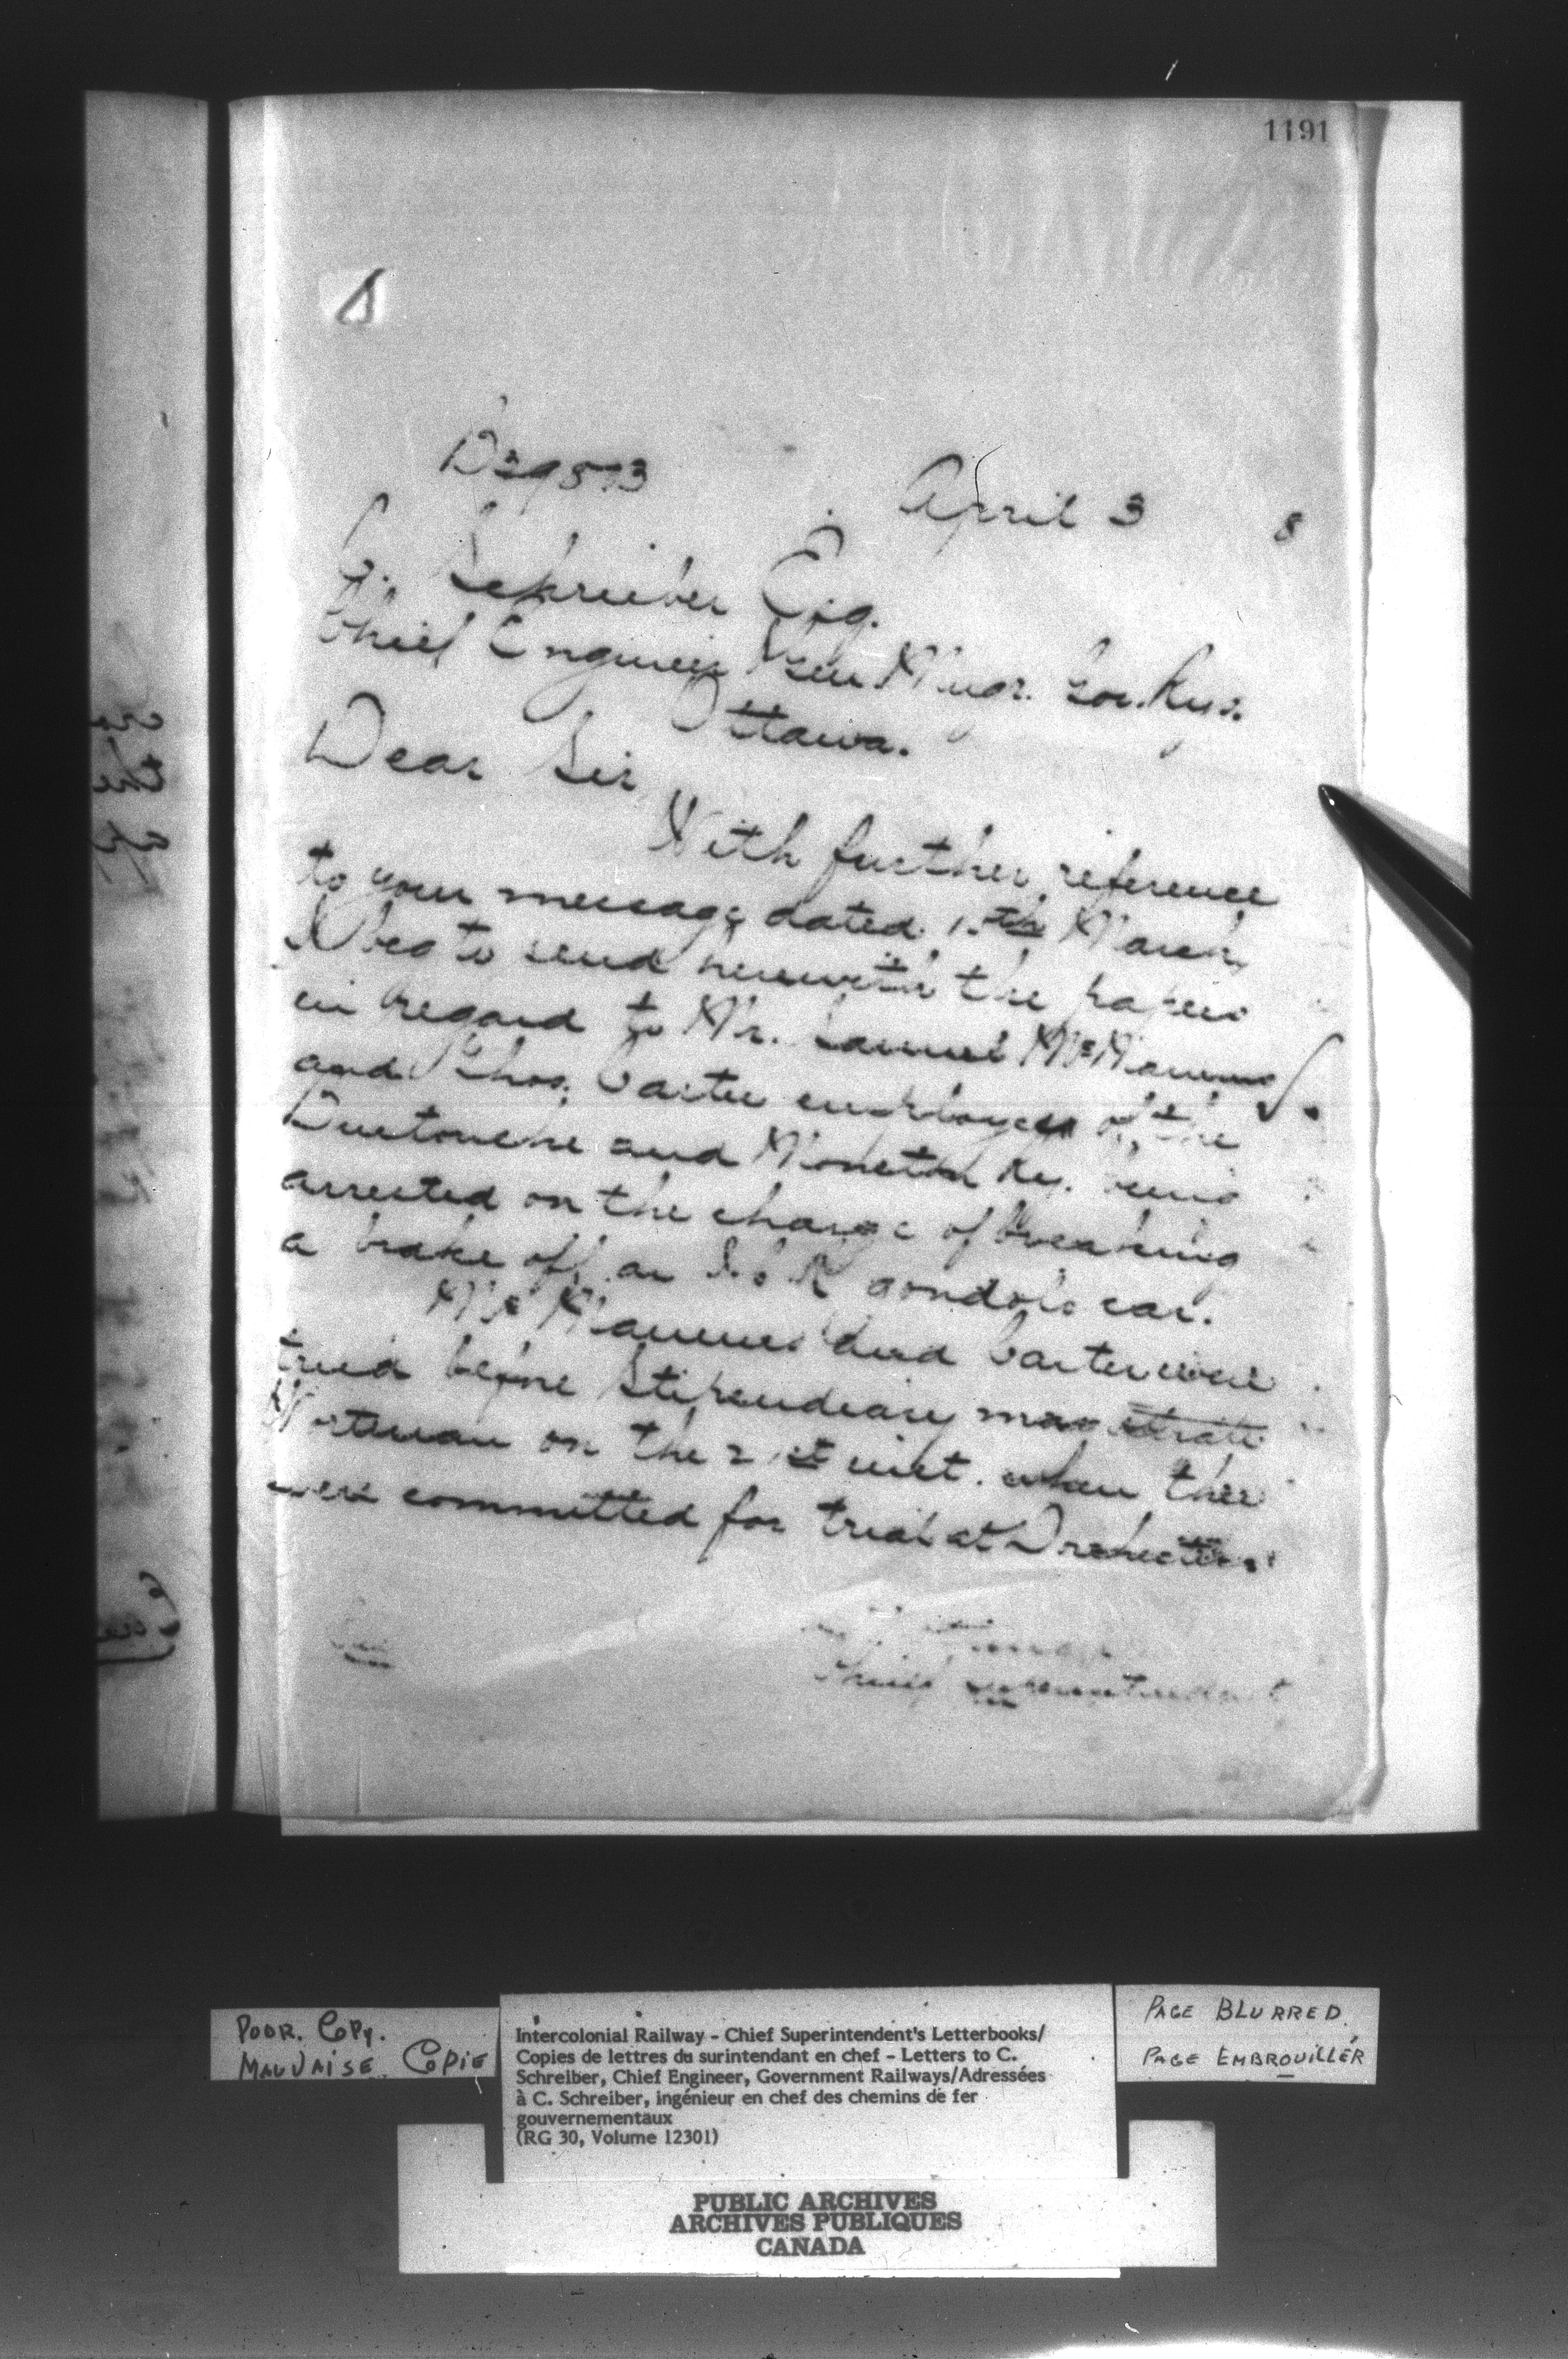 1191
D29573
April 3 8
C. Schreiber Esq.
Chief Engineer & Gen Mngr. Gov. Rys.
Ottawa.
Dear Sir
With further reference
to your message dated March,
I beg to send herewith the papers
in regard to Mr. Samuel McManus
and Thos. Carter employees of the
Buctouche and Moncton Ry. being
arrested on the charge of breaking
a brake off an I.C.R gondola car.
McManus and Carter were
tried before Stipendiary magistrate
Wortman on the 21st inst. when they
were committed for trial at Dorchester.
Chief Superintendent
the
POOR. COPY.
MAUVAISE. COPIE
Intercolonial Railway - Chief Superintendent's Letterbooks/
Copies de lettres du surintendant en chef - Letters to C.
Schreiber, Chief Engineer, Government Railways/Adressées
à C. Schreiber, ingénieur en chef des chemins de fer
gouvernementaux
(RG 30, Volume 12301)
PAGE BLURRED.
PAGE EMBROUILLÉR
PUBLIC ARCHIVES
ARCHIVES PUBLIQUES
CANADA